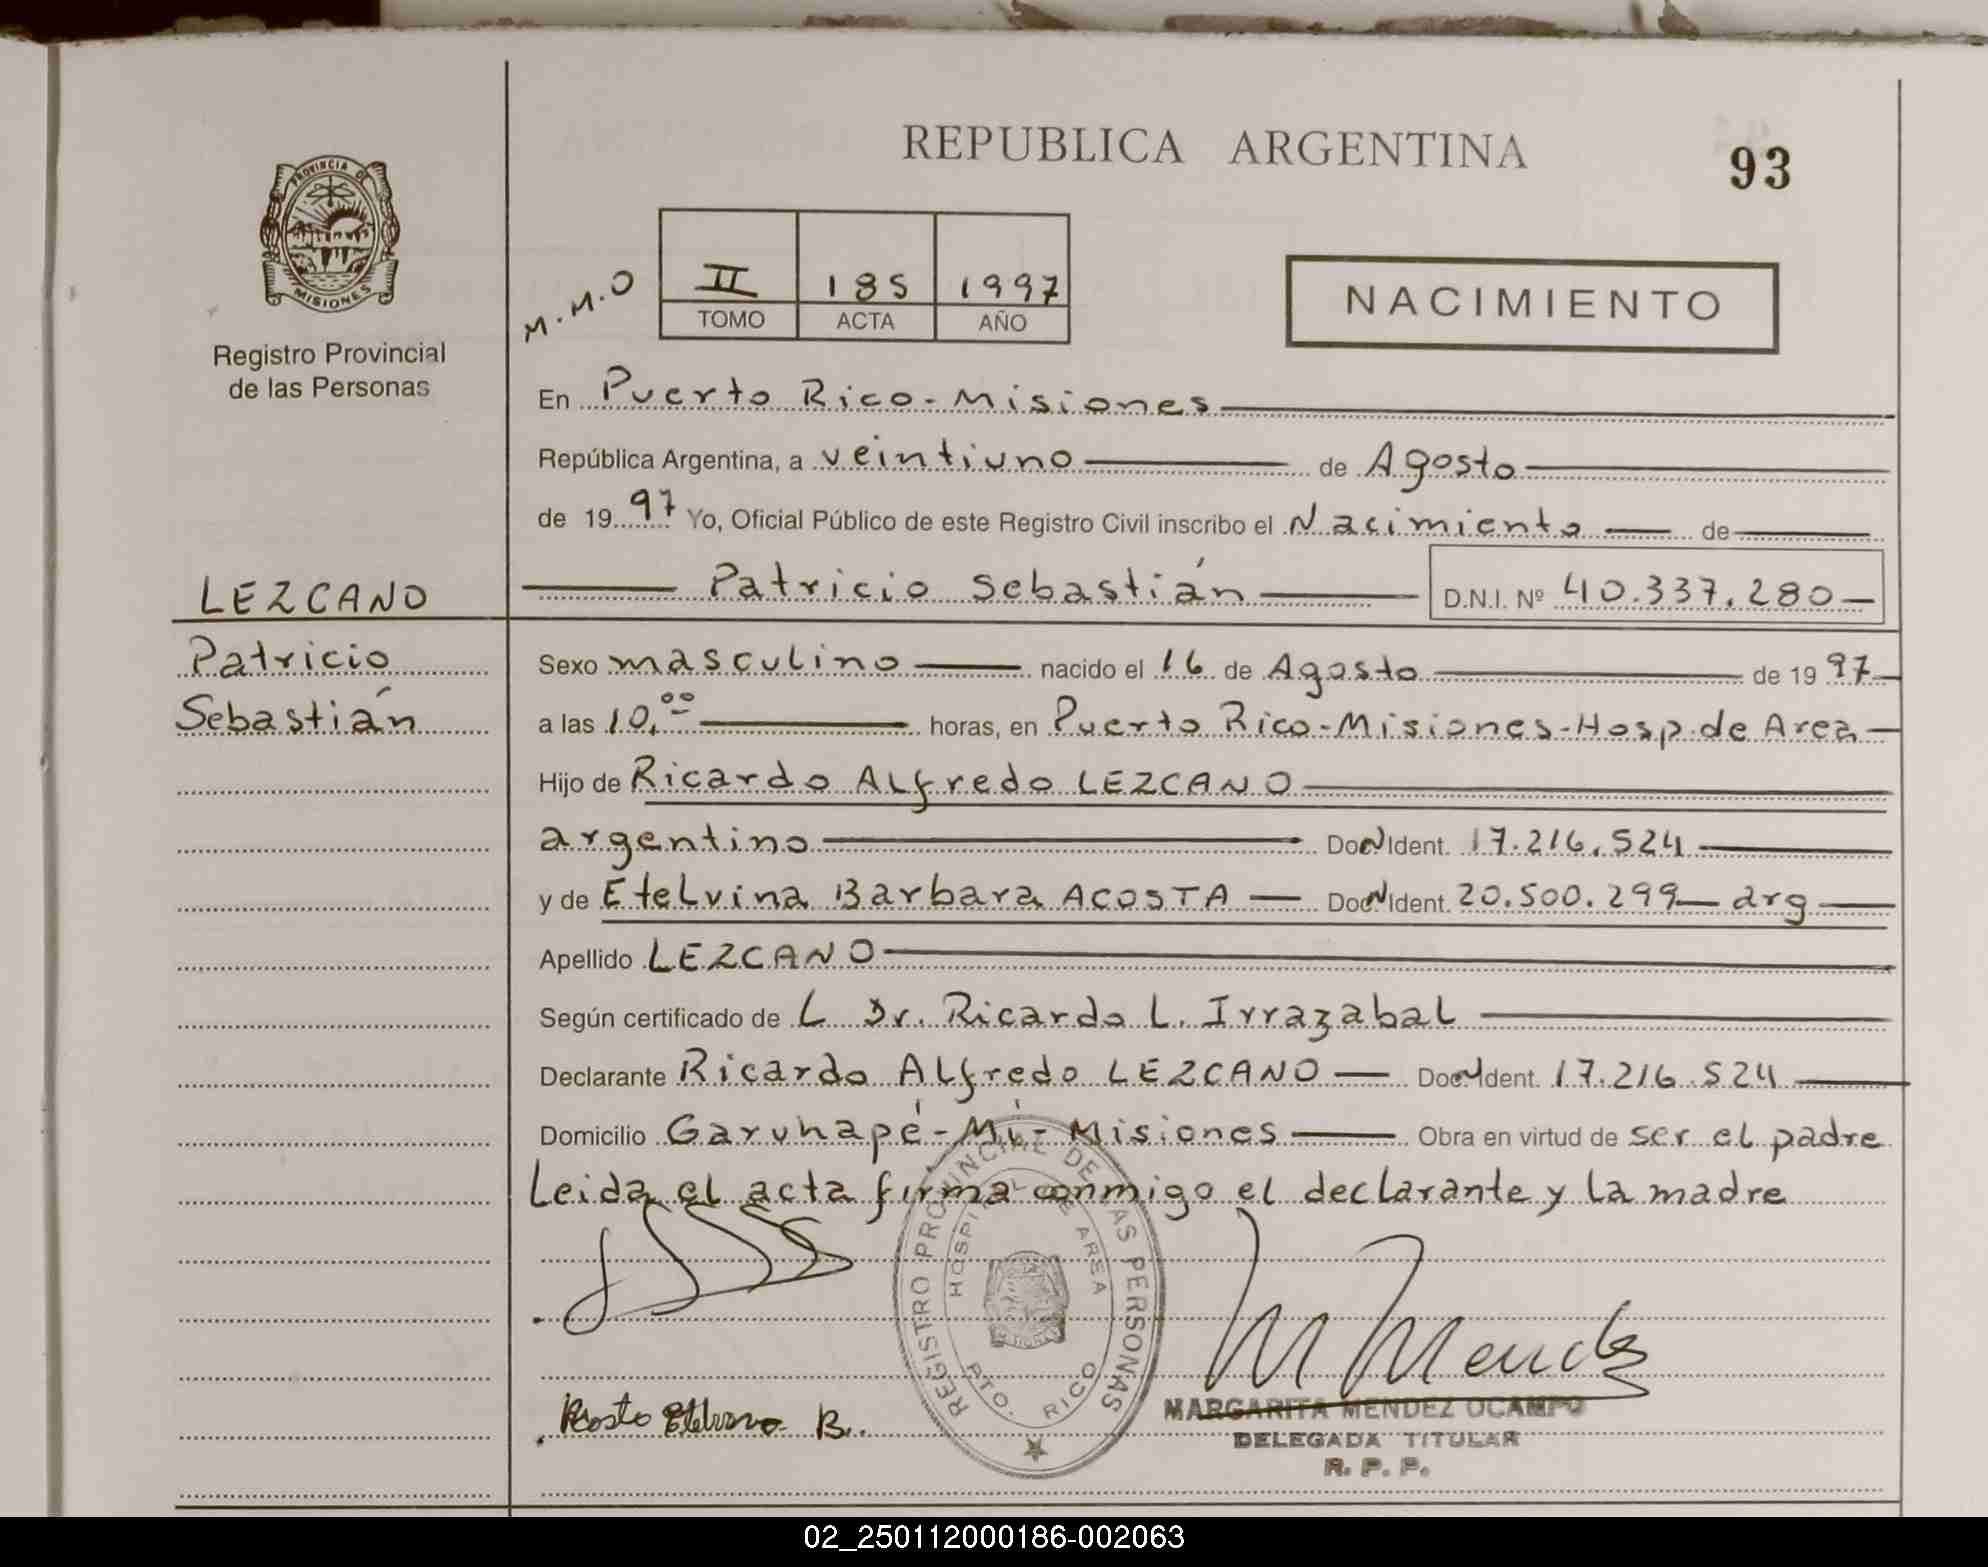 REPUBLICA ARGENTINA
93
PROVINCIA DE
MISIONES
Registro Provincial
de las Personas
M.M.O
II 185 1997
TOMO ACTA AÑO
NACIMIENTO
En Puerto Rico - Misiones
República Argentina, a veintiuno de Agosto
de 1997 Yo, Oficial Público de este Registro Civil inscribo el Nacimiento de
LEZCANO
Patricio Sebastián D.N.I. Nº 40.337.280
Patricio
Sebastián
Sexo masculino nacido el 16 de Agosto de 1997
a las 10,00 horas, en Puerto Rico-Misiones-Hosp. de Area
Hijo de Ricardo Alfredo LEZCANO
argentino Doc N Ident. 17.216.524
y de Etelvina Barbara ACOSTA Doc N Ident. 20.500.299 arg
Apellido LEZCANO
Según certificado de L Dr. Ricardo L. Irrazabal
Declarante Ricardo Alfredo LEZCANO Doc N Ident. 17.216.524
Domicilio Garuhapé-Mí-Misiones Obra en virtud de ser el padre
Leida el acta firma conmigo el declarante y la madre
REGISTRO PROVINCIAL DE LAS PERSONAS
HOSPITAL DE AREA
PTO. RICO
M Mendez
MARGARITA MENDEZ OCAMPO
DELEGADA TITULAR
R. P. P.
B.
02_250112000186-002063